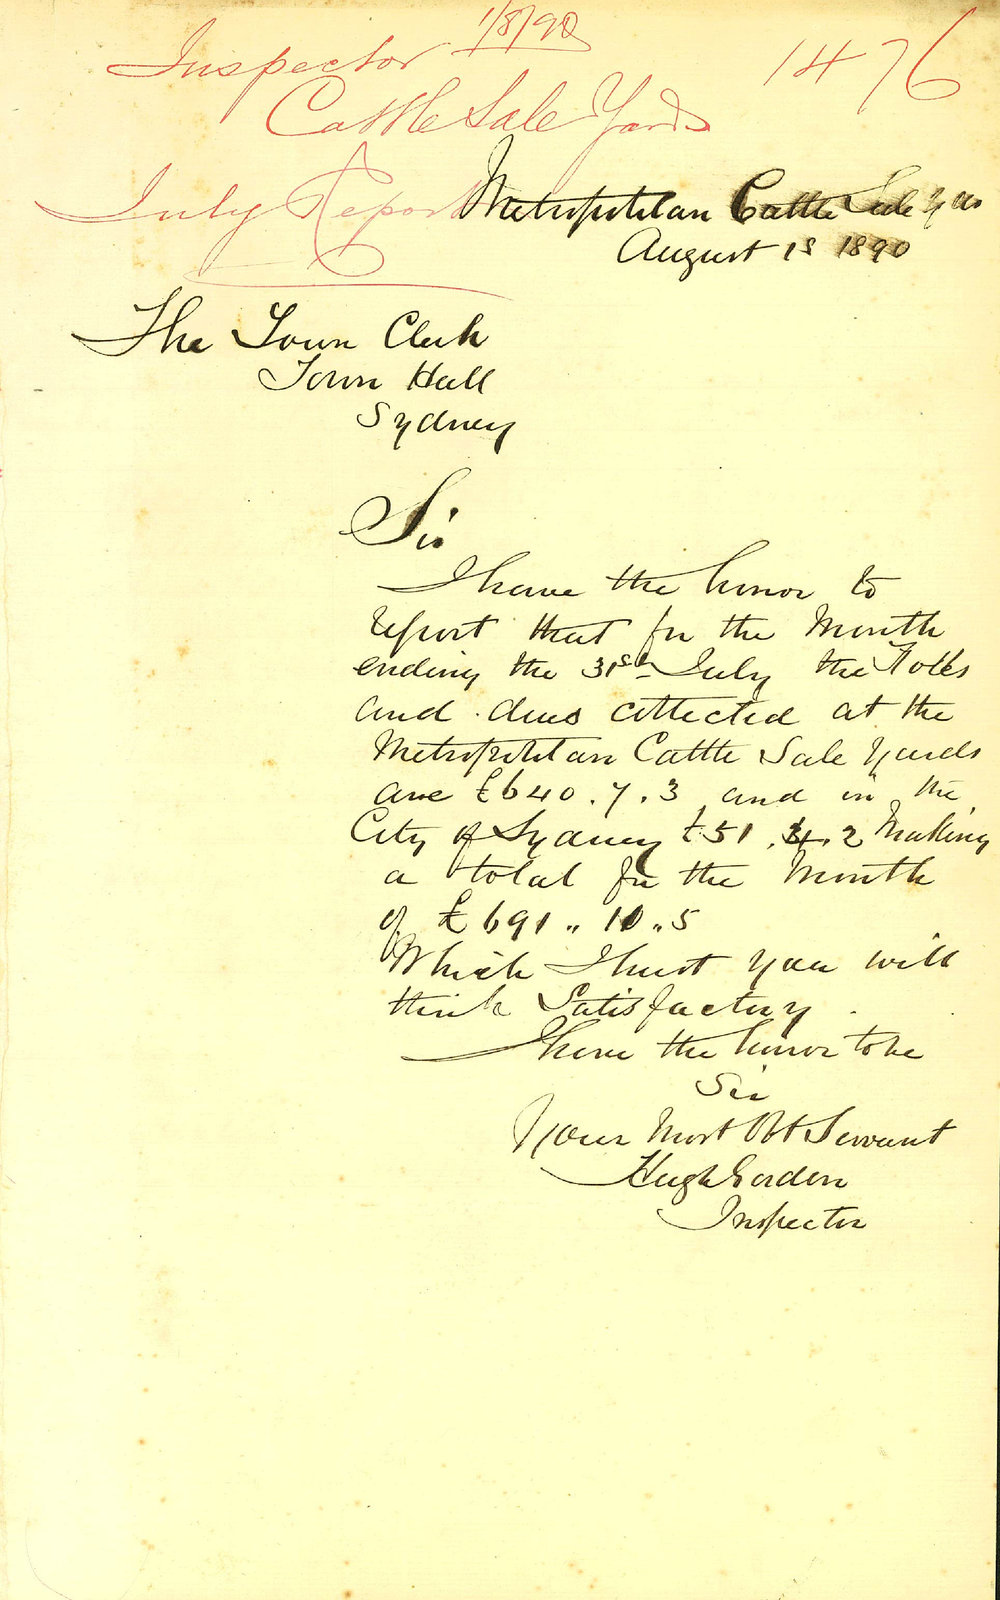 1/8/90
Inspector 1476
Cattle Sale Yards
July Report
Metropolitan Cattle Sale Yds
August 1s 1890
The Town Clerk
Town Hall
Sydney
Sir
I have the honor to
report that for the Month
ending the 31st July the Tolls
and dues collected at the
Metropolitan Cattle Sale Yards
are £640.7.3 and in the
City of Sydney £51.3.2 Making
a total for the Month
of £691..10..5
Which I trust you will
think Satisfactory.
I have the honor to be
Sir
Your Most Obt Servant
Hugh Gordon
Inspector